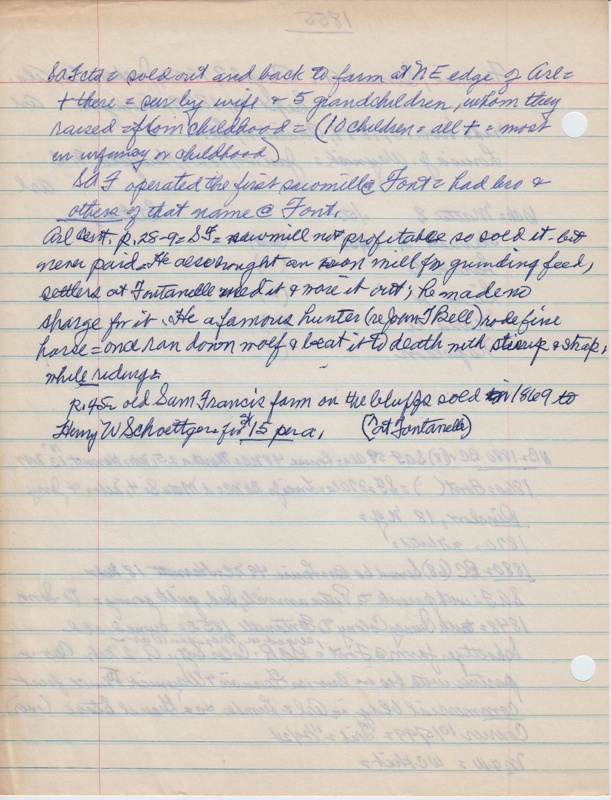 sold out and back to farm at NE edge of Arl=
+ there = sur by wife & 5 grandchildren, whom they
raised = from childhood = (10 children = all + = most
in infancy or childhood)
SAF operated the first sawmill @ Font = had bro &
others of that name @ Font.
Arl cent. p. 28-9 = SF = sawmill not profitable so sold it - but
never paid. He also bought an iron mill for grinding feed,
settlers at Fontanelle used it & wore it out; he made no
charge for it. He a famous hunter (re John T Bell) rode fine
horse = once ran down wolf & beat it to death with stirrup & strap,
while riding.
p. 45 = old Sam Francis farm on the bluffs sold in 1869 to
Henry W Schoettger for $15 per a. (at Fontanelle)